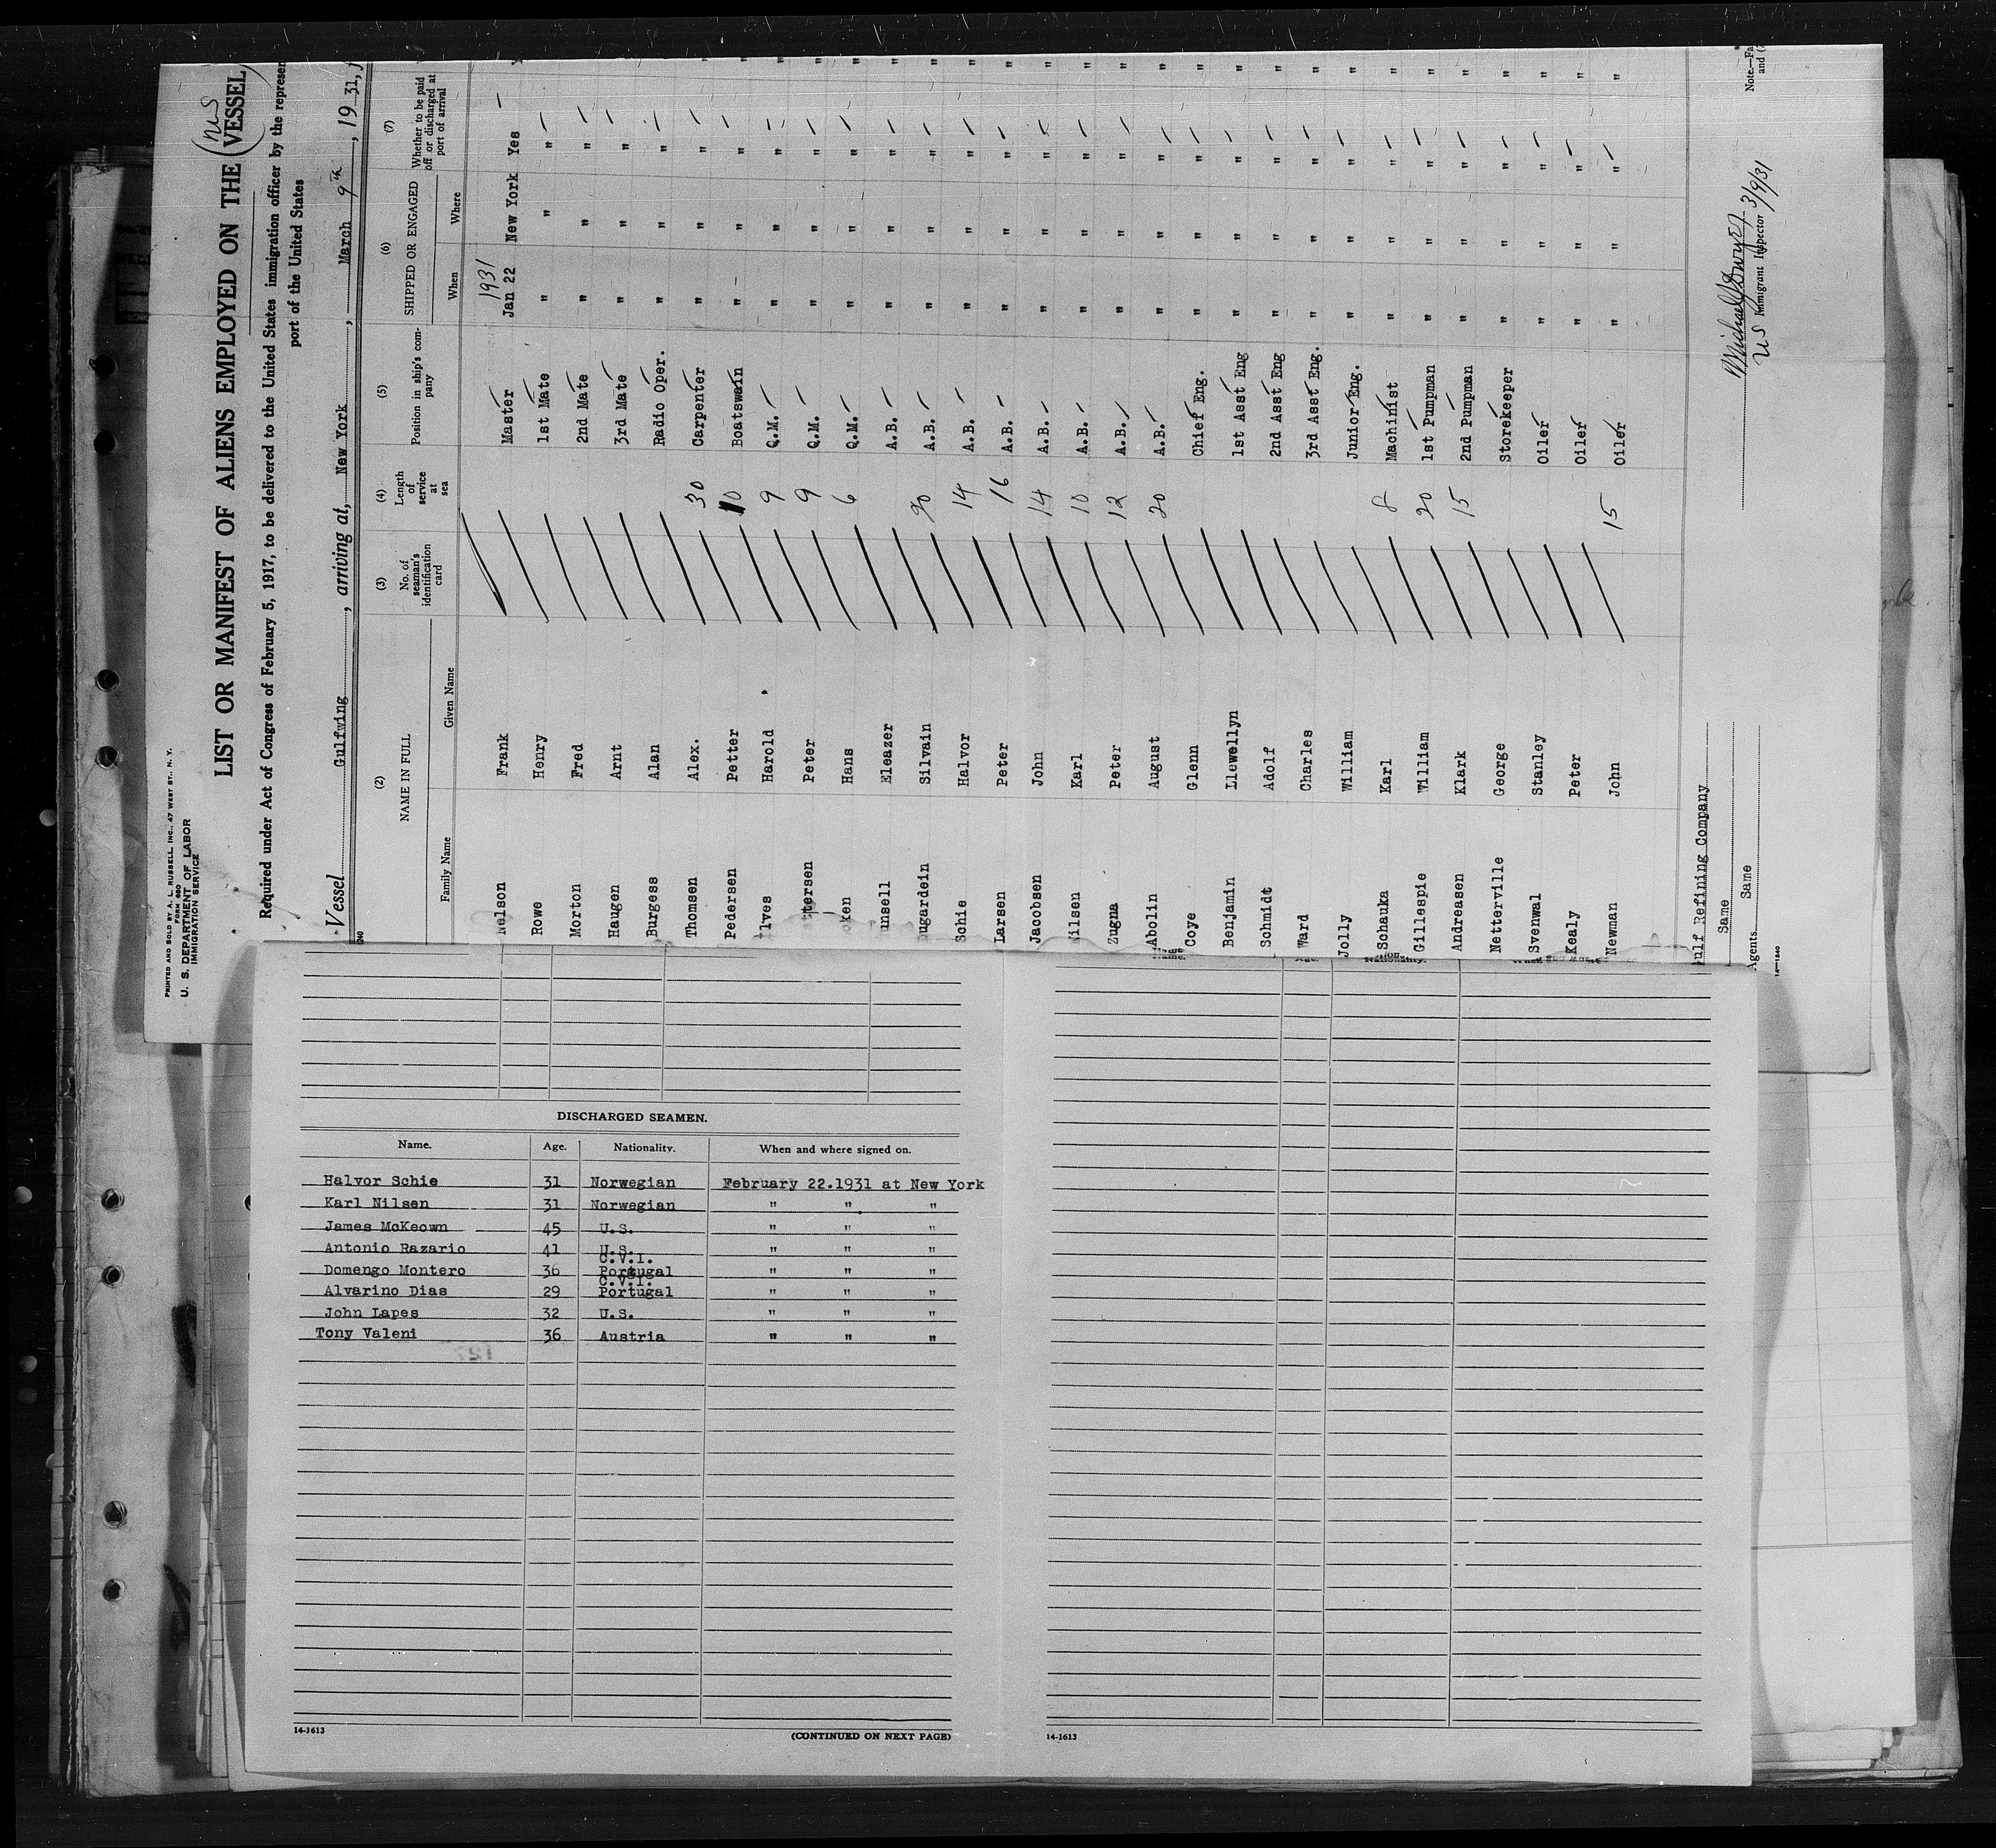 PRINTED AND SOLD BY A. L. RUSSELL, INC., 47 WEST ST., N. Y.
FORM 680
U. S. DEPARTMENT OF LABOR
IMMIGRATION SERVICE
LIST OR MANIFEST OF ALIENS EMPLOYED ON THE VESSEL
US
Required under Act of Congress of February 5, 1917, to be delivered to the United States immigration officer by the represen
port of the United States
Vessel Gulfwing, arriving at, New York, March 9th, 1931, f
(2) (3) (4) (5) (6) (7)
NAME IN FULL
No. of seaman's identification card
Length of service at sea
Position in ship's company
SHIPPED OR ENGAGED
Whether to be paid off or discharged at port of arrival
Family Name Given Name When Where
1931
Nelson Frank Master Jan 22 New York Yes
Rowe Henry 1st Mate " " " "
Morton Fred 2nd Mate " " "
Haugen Arnt 3rd Mate " " "
Burgess Alan Radio Oper. " " "
Thomsen Alex. 30 Carpenter " " " "
Pedersen Petter 10 Boatswain " " " "
lves Harold 9 Q.M. " " " "
ttersen Peter 9 Q.M. " " " "
oken Hans 6 Q.M. " " " "
unsell Eleazer A.B. " " " "
ugardein Silvain 20 A.B. " " " "
Schie Halvor 14 A.B. " " " "
Larsen Peter 16 A.B. " " " "
Jacobsen John 14 A.B. " " " "
Nilsen Karl 10 A.B. " " " "
Zugna Peter 12 A.B. " " " "
Abolin August 20 A.B. " " " "
Coye Glenn Chief Eng. " " " "
Benjamin Llewellyn 1st Asst Eng " " " "
Schmidt Adolf 2nd Asst Eng " " " "
Ward Charles 3rd Asst Eng. " " " "
Jolly William Junior Eng. " " " "
Schauka Karl 8 Machinist " " " "
Gillespie William 20 1st Pumpman " " " "
Andreasen Klark 15 2nd Pumpman " " " "
Netterville George Storekeeper " " " "
Svenwal Stanley Oiler " " " "
Kealy Peter Oiler " " " "
Newman John 15 Oiler " " " "
ulf Refining Company
Same
Agents Same
3/9/31
US Immigrant Inspector
Note.—Fa
and (
DISCHARGED SEAMEN.
Name. Age. Nationality. When and where signed on.
Halvor Schie 31 Norwegian February 22.1931 at New York
Karl Nilsen 31 Norwegian " " "
James McKeown 45 U.S. " " "
Antonio Razario 41 U.S. " " "
C.V.I.
Domengo Montero 36 Portugal " " "
C.V.I.
Alvarino Dias 29 Portugal " " "
John Lapes 32 U.S. " " "
Tony Valeni 36 Austria " " "
14-1613
(CONTINUED ON NEXT PAGE)
14-1613